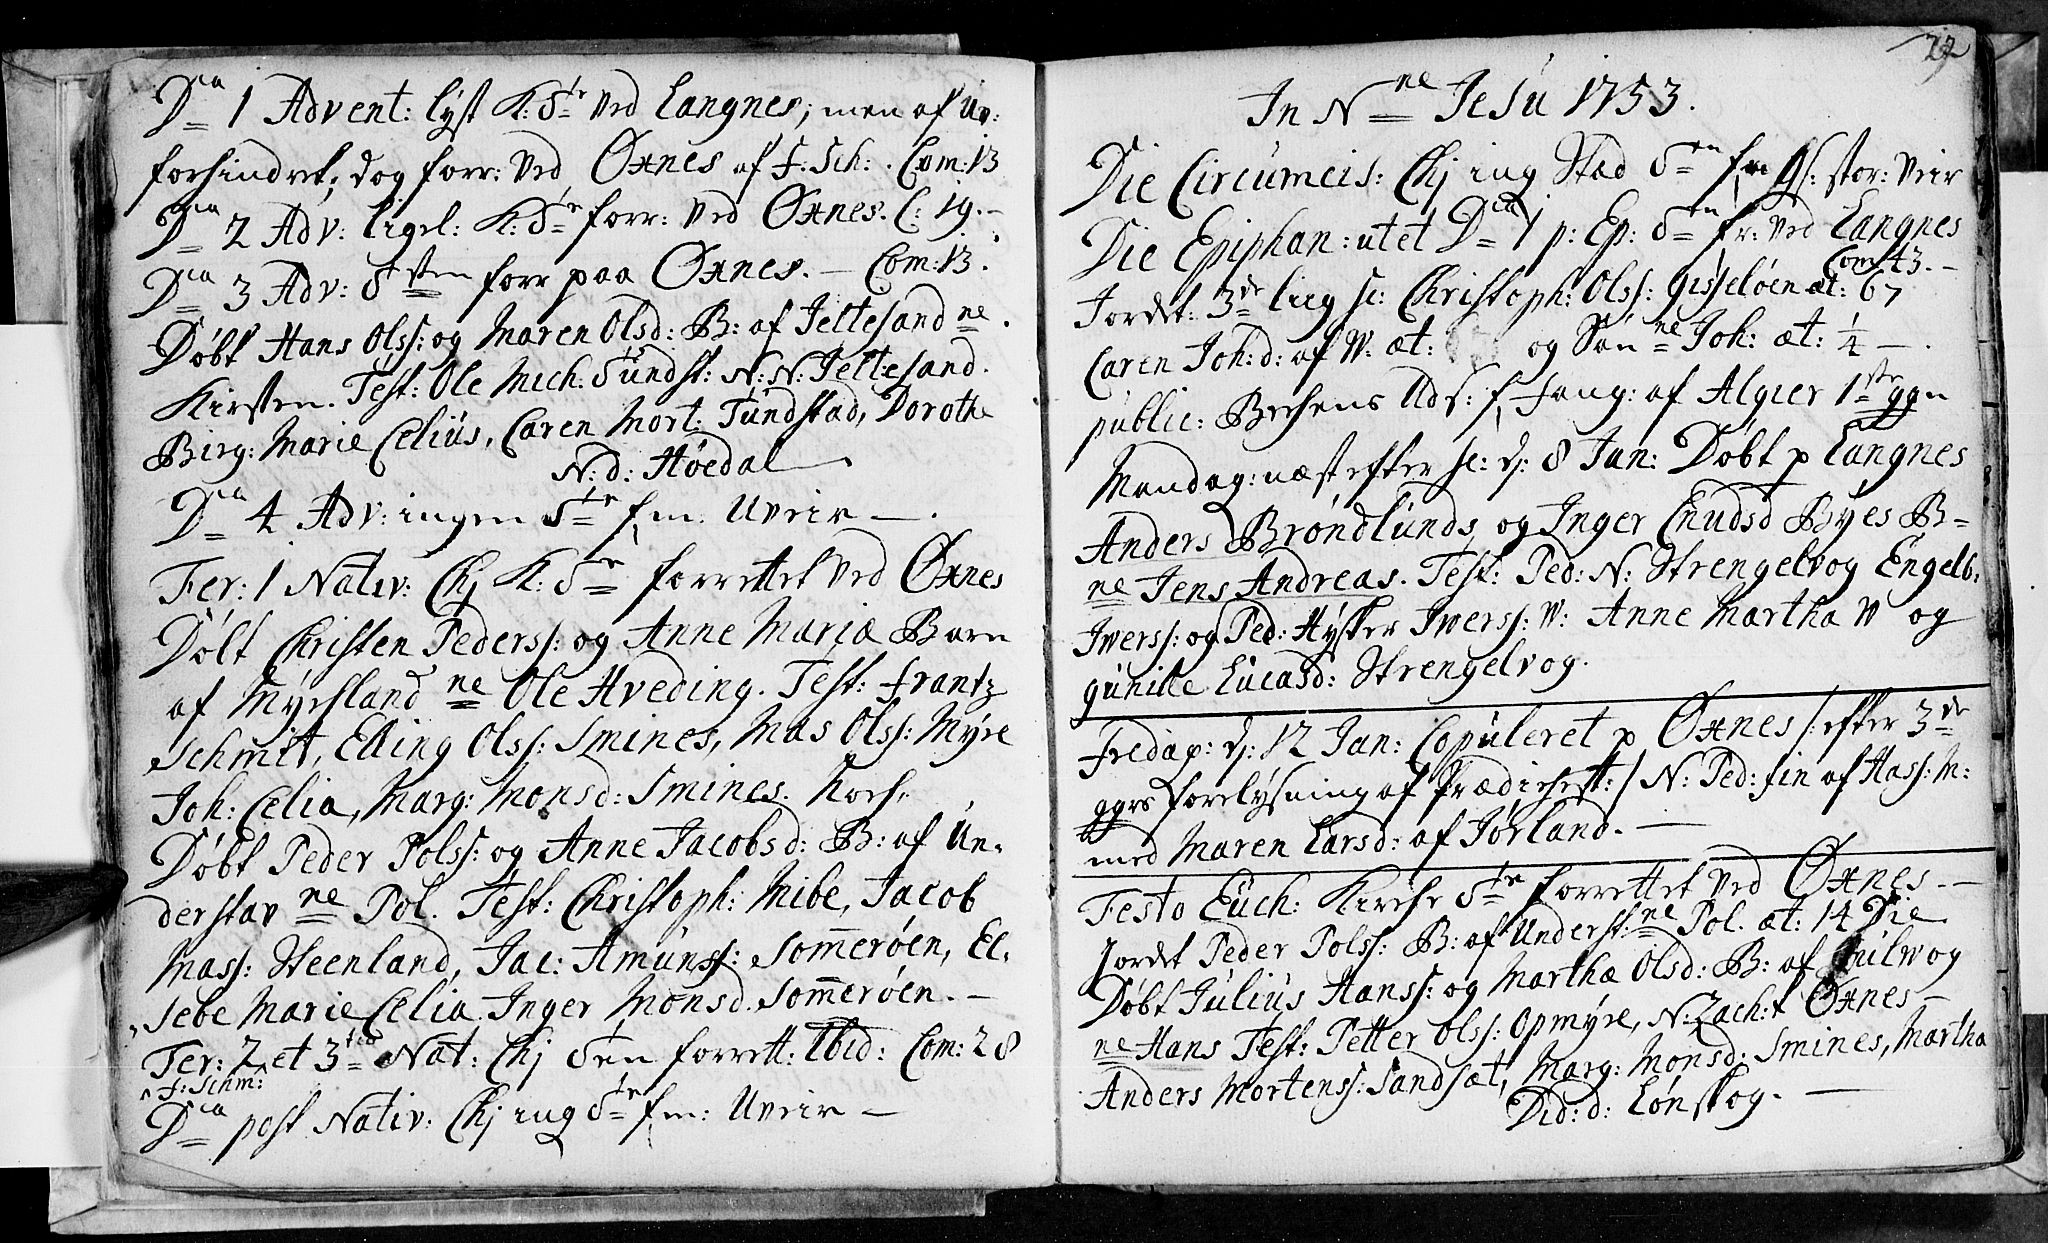 Dca 1 Advent: lyst K: Ste ved Langnes; men af Uv:
forhindret; dog forr: ved Øxnes af F. Sch: . Com: 13
Dca 2 Adv: ligel: K: Ste forr: ved Øxnes. C: 19. –
Dca 3 Adv: Sten forr paa Øxnes. – Com: 13.
Døbt Hans Olss: og Maren Olsd: B: af Jeltesand ne.
Kirsten. Test: Ole Mich. Sundst: N: N: Jeltesand.
Birg: Marie Celius, Caren Mort: Tundstad, Dorothe
N: d: Høedal
Dca 4 Adv: ingen Ste fm: Uveir – .
Fer: 1 Nativ: Chj K: Ste forrettet ved Øxnes
Døbt Christen Pederss: og Anne Mariæ Barn
af Myresland ne Ole Hveding. Test: Frantz
Schmit, Elling Olss: Smines, Mas Olss: Myre
Joh: Celia, Marg: Monsd: Smines.
Døbt Peder Polss: og Anne Jacobsd: B: af Un-
derstav ne Pol. Test: Christoph: Mibe, Jacob
Mass: Steenland, Jac: Amunss: Som̄erøen, El-
sebe Marie Celia Inger Monsd. Som̄erøen. –
Fer: 2 et 3tia Nat: Chj Sen forrett: Ibid: Com: 28
F: Schm:
Dca post Nativ: Chj ing Ste fm: Uveir –
22
In Nne Jesu 1753.
Die Circumcis: Chj ing Stæd Sten fm stor: Veir
Die Epiphan: ut et Dca 1 p: Ep: Sten fr: ved Langnes
Com: 43. –
Jordet: 3de liig sc: Christoph: Olss: Gisseløen æt: 67
Caren Joh: d: af W: æt: og Søn ne Joh: æt: 1/4 – .
public: Bechens Uds: f Fang: af Algier 1ste ggn
Mandag: næst efter sc: d: 8 Jan: Døbt p Langnes
Anders Brøndlunds og Inger Cnudsd Byes B-
ne Jens Andreas. Test: Ped: N: Strengelvog Engelb:
Iverss: og Ped: Hysker Iverss: W: Anne Martha W og
Gunille Lucasd: Strengelvog.
Fredag: d: 12 Jan: Copuleret p Øxnes /: efter 3de
ggrs forelysning af Prædichest: / N: Ped: fin af Hass: M:
med Maren Larsd: af Jørland. –
Festo Euch: Kirche Ste forrettet ved Øxnes. –
Jordet Peder Polss: B: af Underst: ne Pol. æt: 14 Die
Døbt Julius Hanss: og Marthæ Olsd: B: af Tuilvog
ne Hans Test: Petter Olss: Opmyre, N: Zach: t Øxnes –
Anders Mortenss: Sandsæt, Marg: Monsd: Smines, Martha
Did: d: Lønskog. –